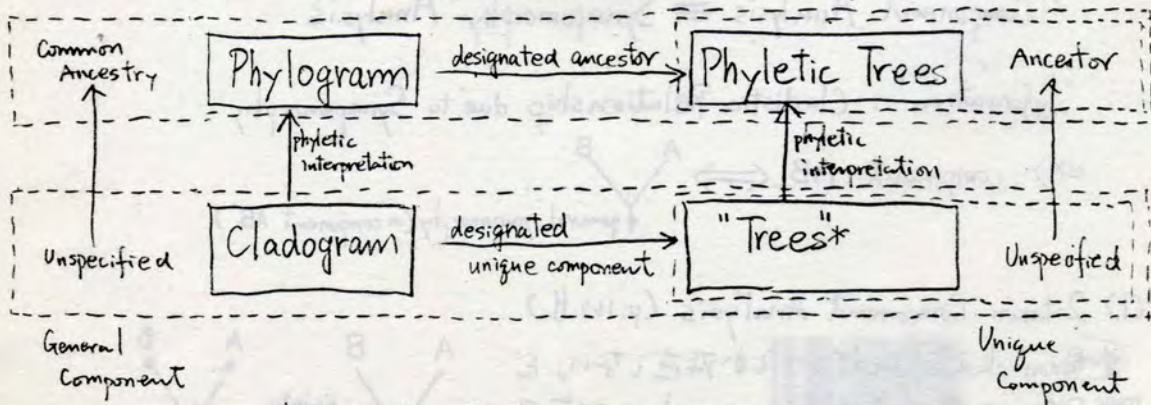 Common
Ancestry
Phylogram
designated ancestor
Phyletic Trees
Ancestor
phyletic
interpretation
phyletic
interpretation
Unspecified
Cladogram
designated
unique component
"Trees"*
Unspecified
General
Component
Unique
Component